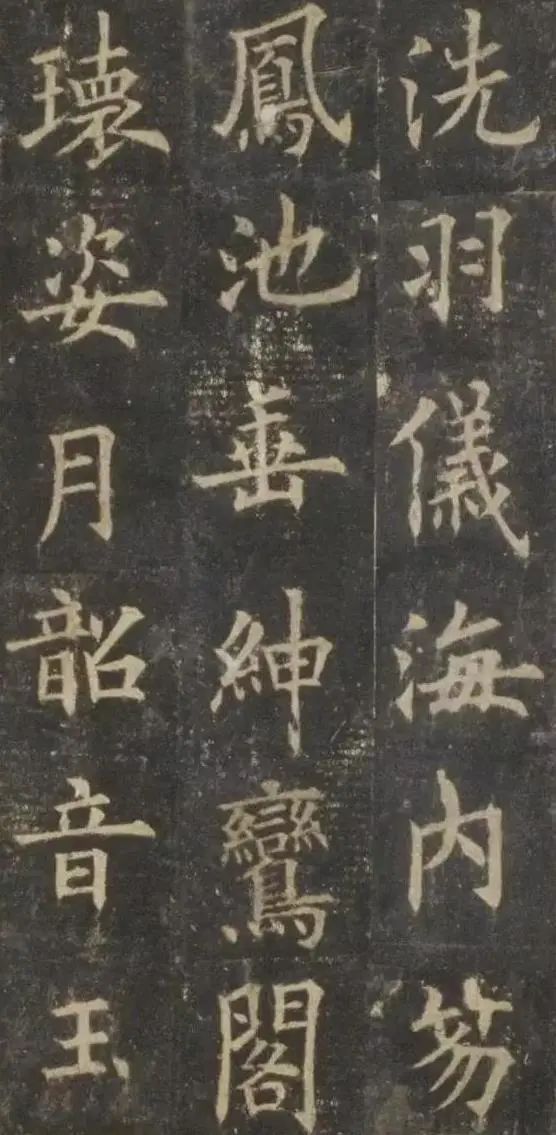 洗羽儀海内笏
鳳池垂紳鸞閣
瓌姿月韶音玉